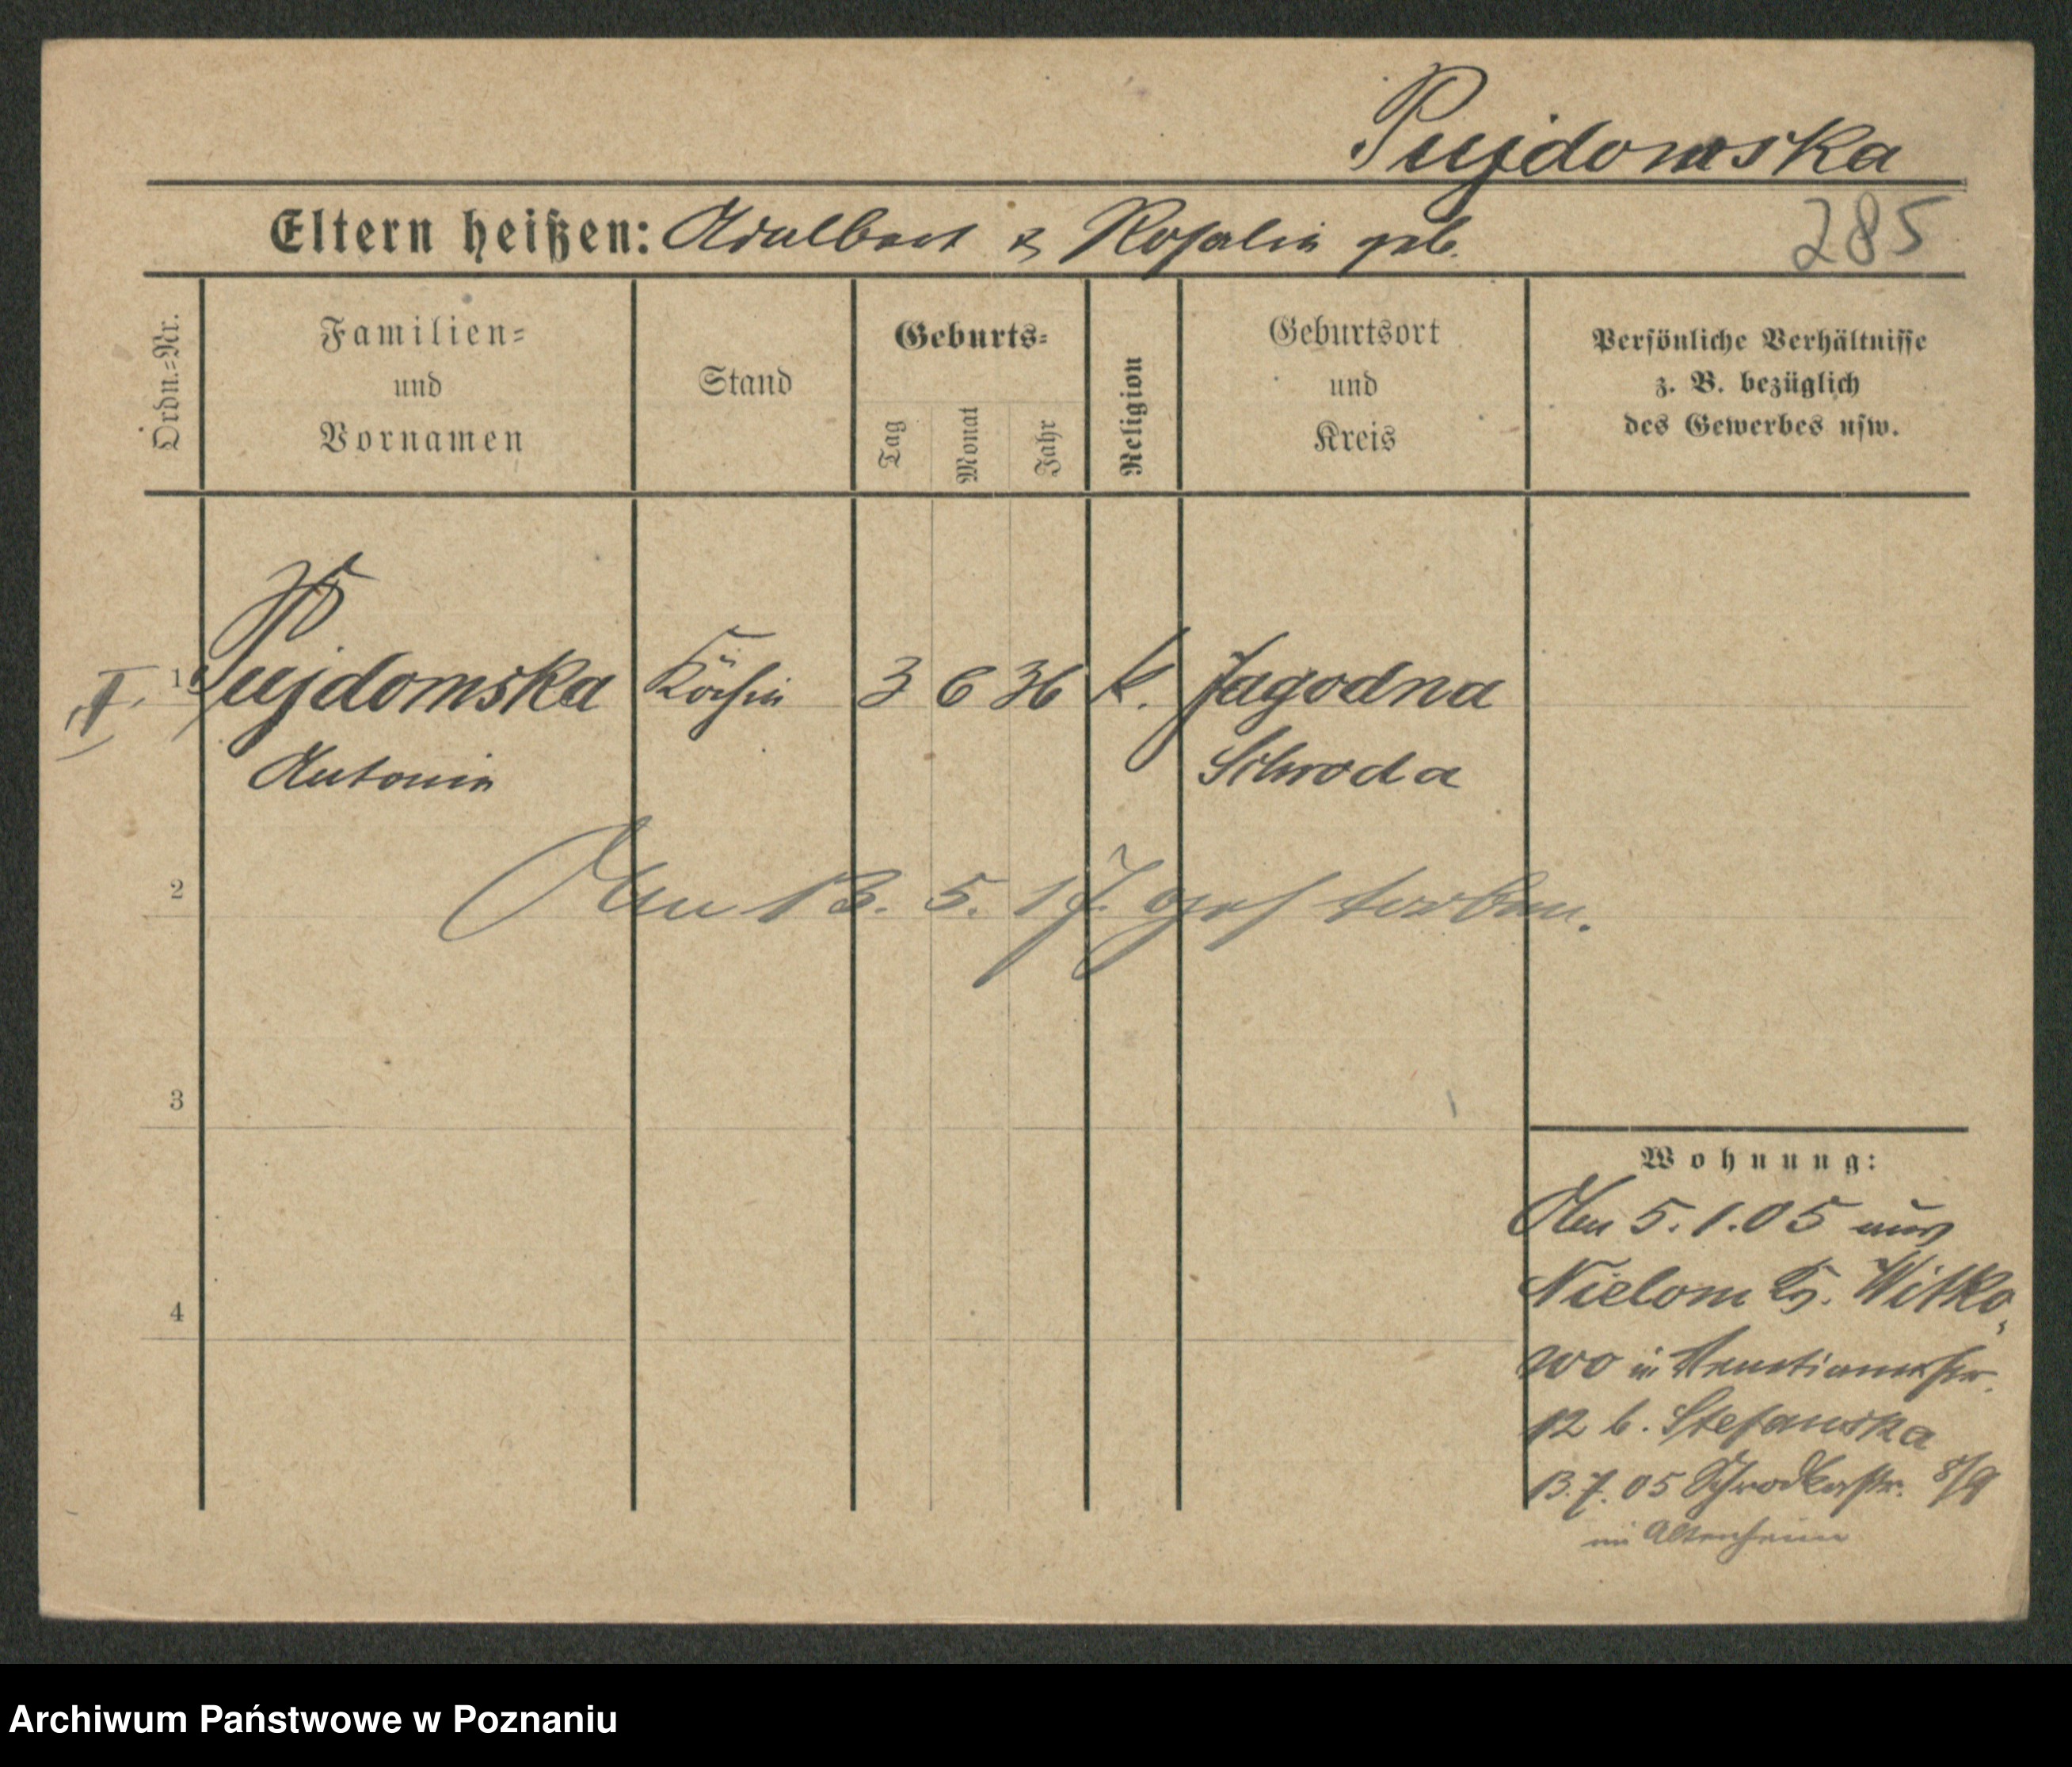 Pujdowska
Eltern heißen: Adalbert & Rosalia geb.
285
Ordn.-Nr.
Familien-
und
Vornamen
Stand
Geburts-
Tag
Monat
Jahr
Religion
Geburtsort
und
Kreis
Persönliche Verhältnisse
z. B. bezüglich
des Gewerbes usw.
1 Pujdomska Köchin 3 6 36 k. Jagodna
Antonia Schroda
2
Am 13. 5. 17. gestorben.
3
4
Wohnung:
Am 5.1.05 aus
Nielom Kr. Witko
wo in
12 b. Stefanska
13.7.05 Schrodkastr. 8/9
im Altenheim
Archiwum Państwowe w Poznaniu